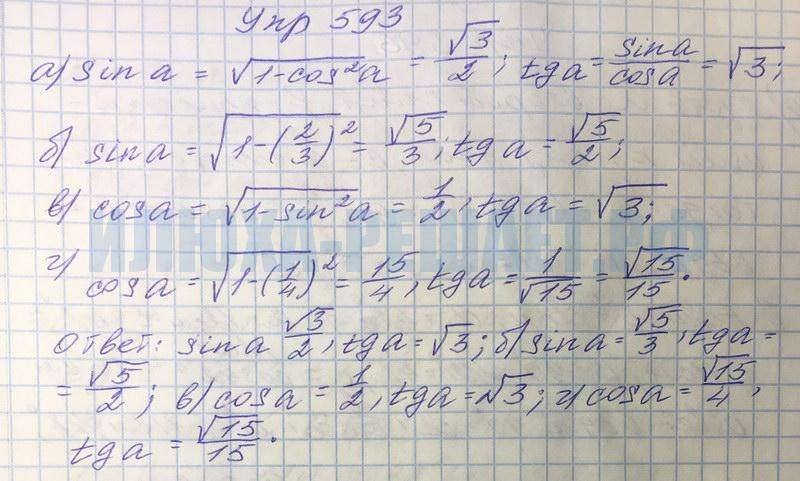 Упр 593
а) sin a = √(1-cos²a) = √3/2; tga = sina/cosa = √3;
б) sin a = √(1-(2/3)²) = √5/3; tg a = √5/2;
в) cosa = √(1-sin²a) = 1/2, tga = √3;
ИЛЮХА-РЕШАЕТ.РФ
г) cosa = √(1-(1/4)²) = 15/4, tga = 1/√15 = √15/15.
Ответ: sina √3/2, tga = √3; б) sina = √5/3, tga =
= √5/2; в) cosa = 1/2, tga = √3; г) cosa = √15/4,
tga = √15/15.